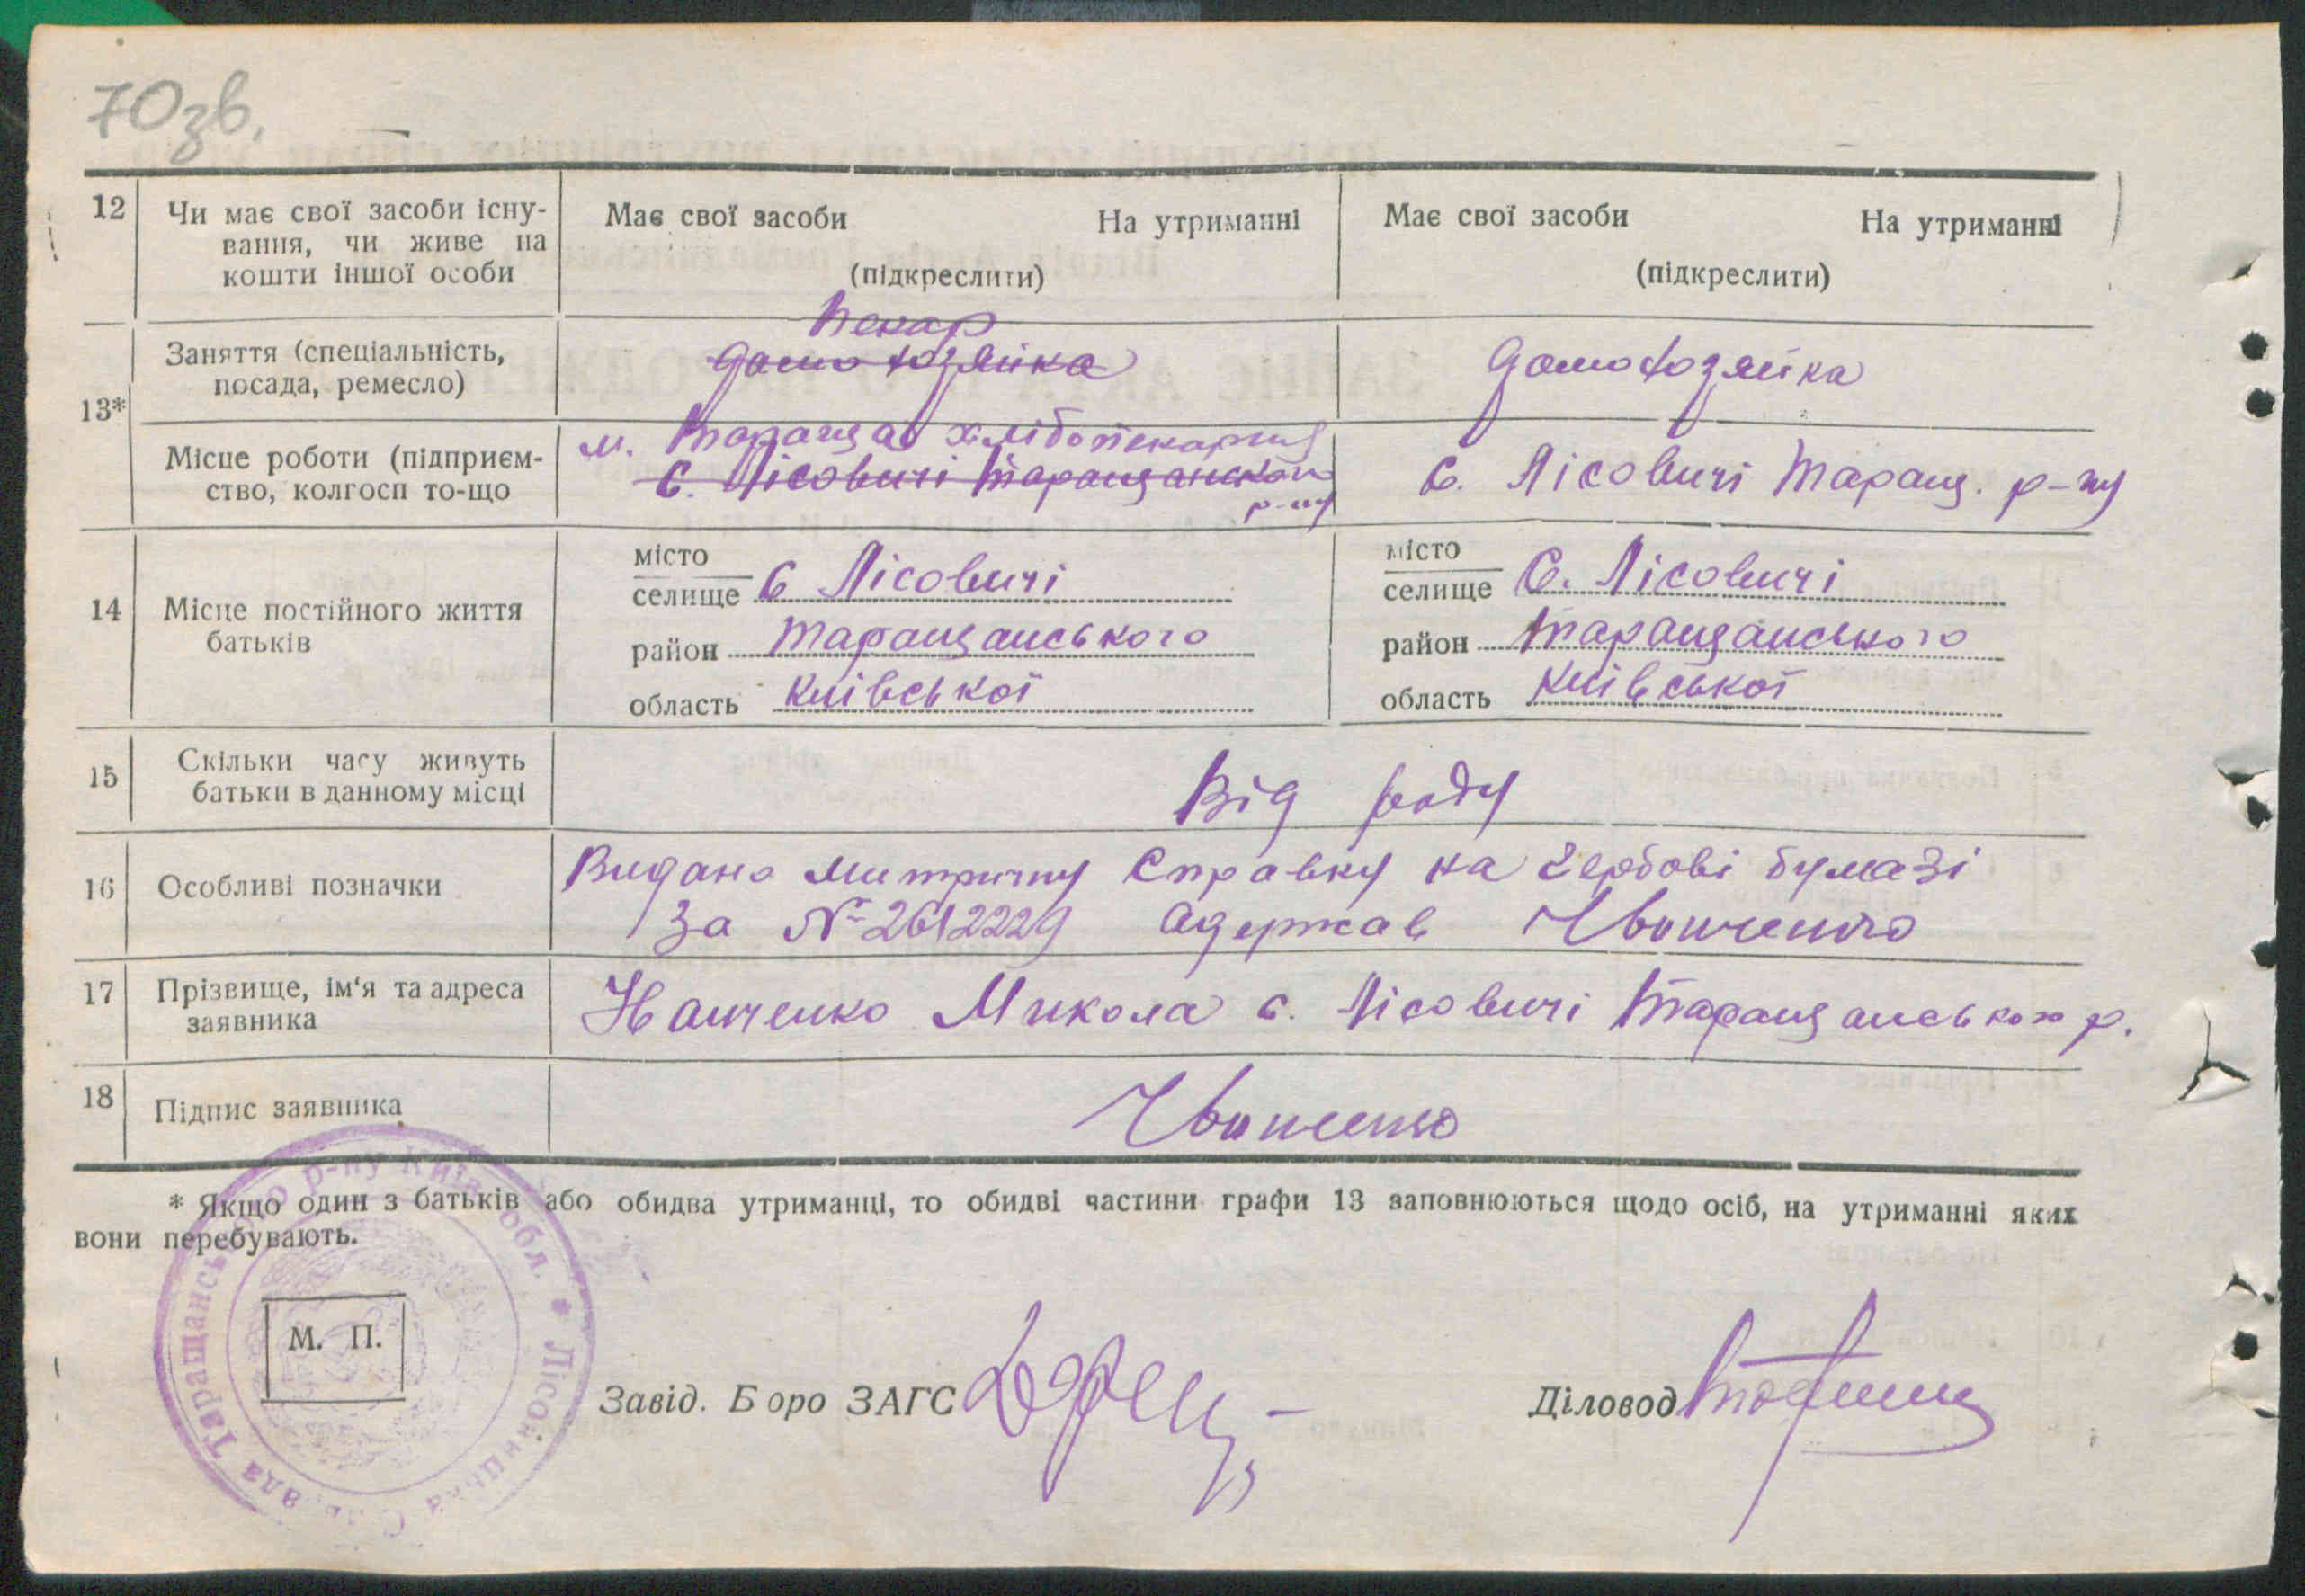 70зв.
12 Чи має свої засоби існу-
вання, чи живе на
кошти іншої особи
Має свої засоби На утриманні
(підкреслити)
Має свої засоби На утриманні
(підкреслити)
13*
Заняття (спеціальність,
посада, ремесло)
Пекар
домохозяйка
домохозяйка
Місце роботи (підприєм-
ство, колгосп то-що
м. Тараща хлібопекарня
с. Лісовичі Таращанского
р-ну
с. Лісовичі Таращ. р-ну
14 Місце постійного життя
батьків
місто
селище с Лісовичі
район Таращанського
область Київської
місто
селище с. Лісовичі
район Таращанського
область Київської
15 Скільки часу живуть
батьки в данному місці
Від роду
16 Особливі позначки
Видано митричну Справку на гербові бумазі
За № 2612229 адержав Иванченко
17 Прізвище, ім'я та адреса
заявника
Иванченко Микола с. Лісовичі Таращанського р.
18 Підпис заявника
Иванченко
* Якщо один з батьків або обидва утриманці, то обидві частини графи 13 заповнюються щодо осіб, на утриманні яких
вони перебувають.
М. П.
Таращанського р-ну Київ. обл. * Лісовицька Сіль. рада
Завід. Б оро ЗАГС
Діловод